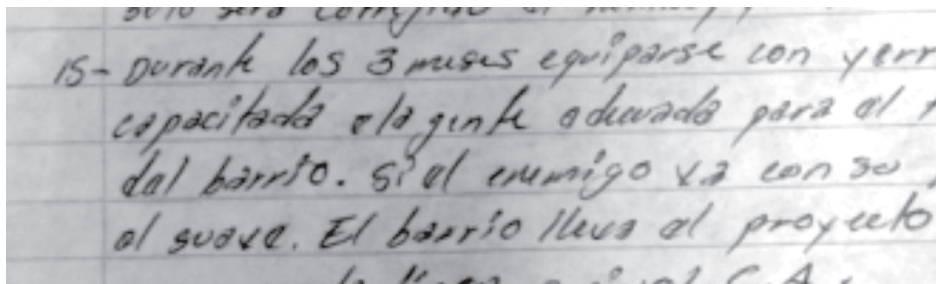 solo sera corregido el
15- Durante los 3 meses equiparse con yerr
capacitada a la gente adecuada para el
del barrio. Si el enemigo va con su
al suave. El barrio lleva el proyecto
la linea C.A.